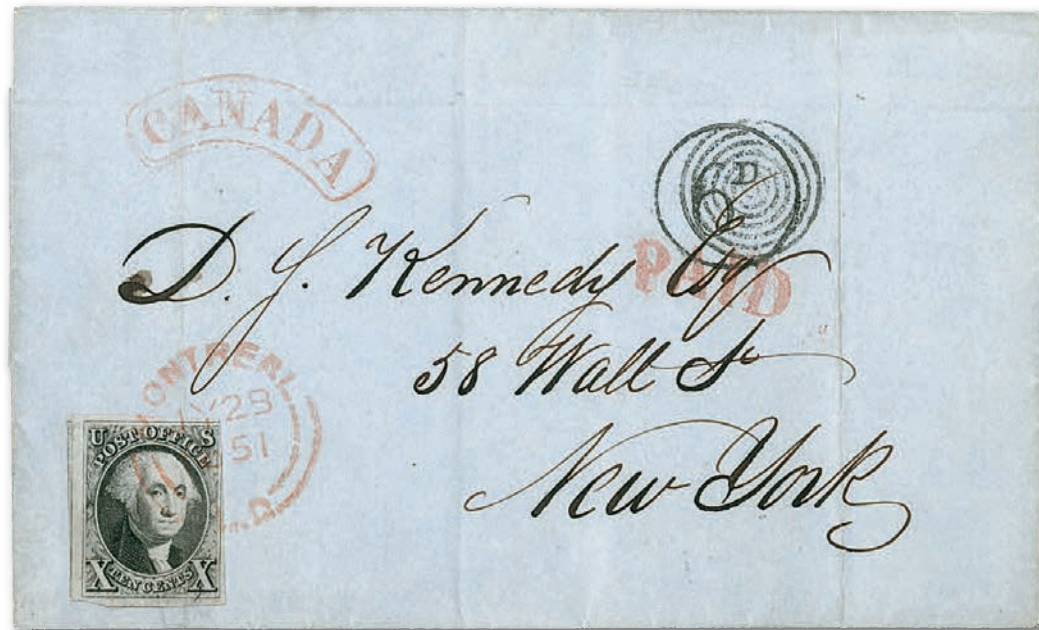 CANADA
6D
PAID
D. J. Kennedy Esq
58 Wall St
New York
MONTREAL
28
51
U S
POST OFFICE
X TEN CENTS X